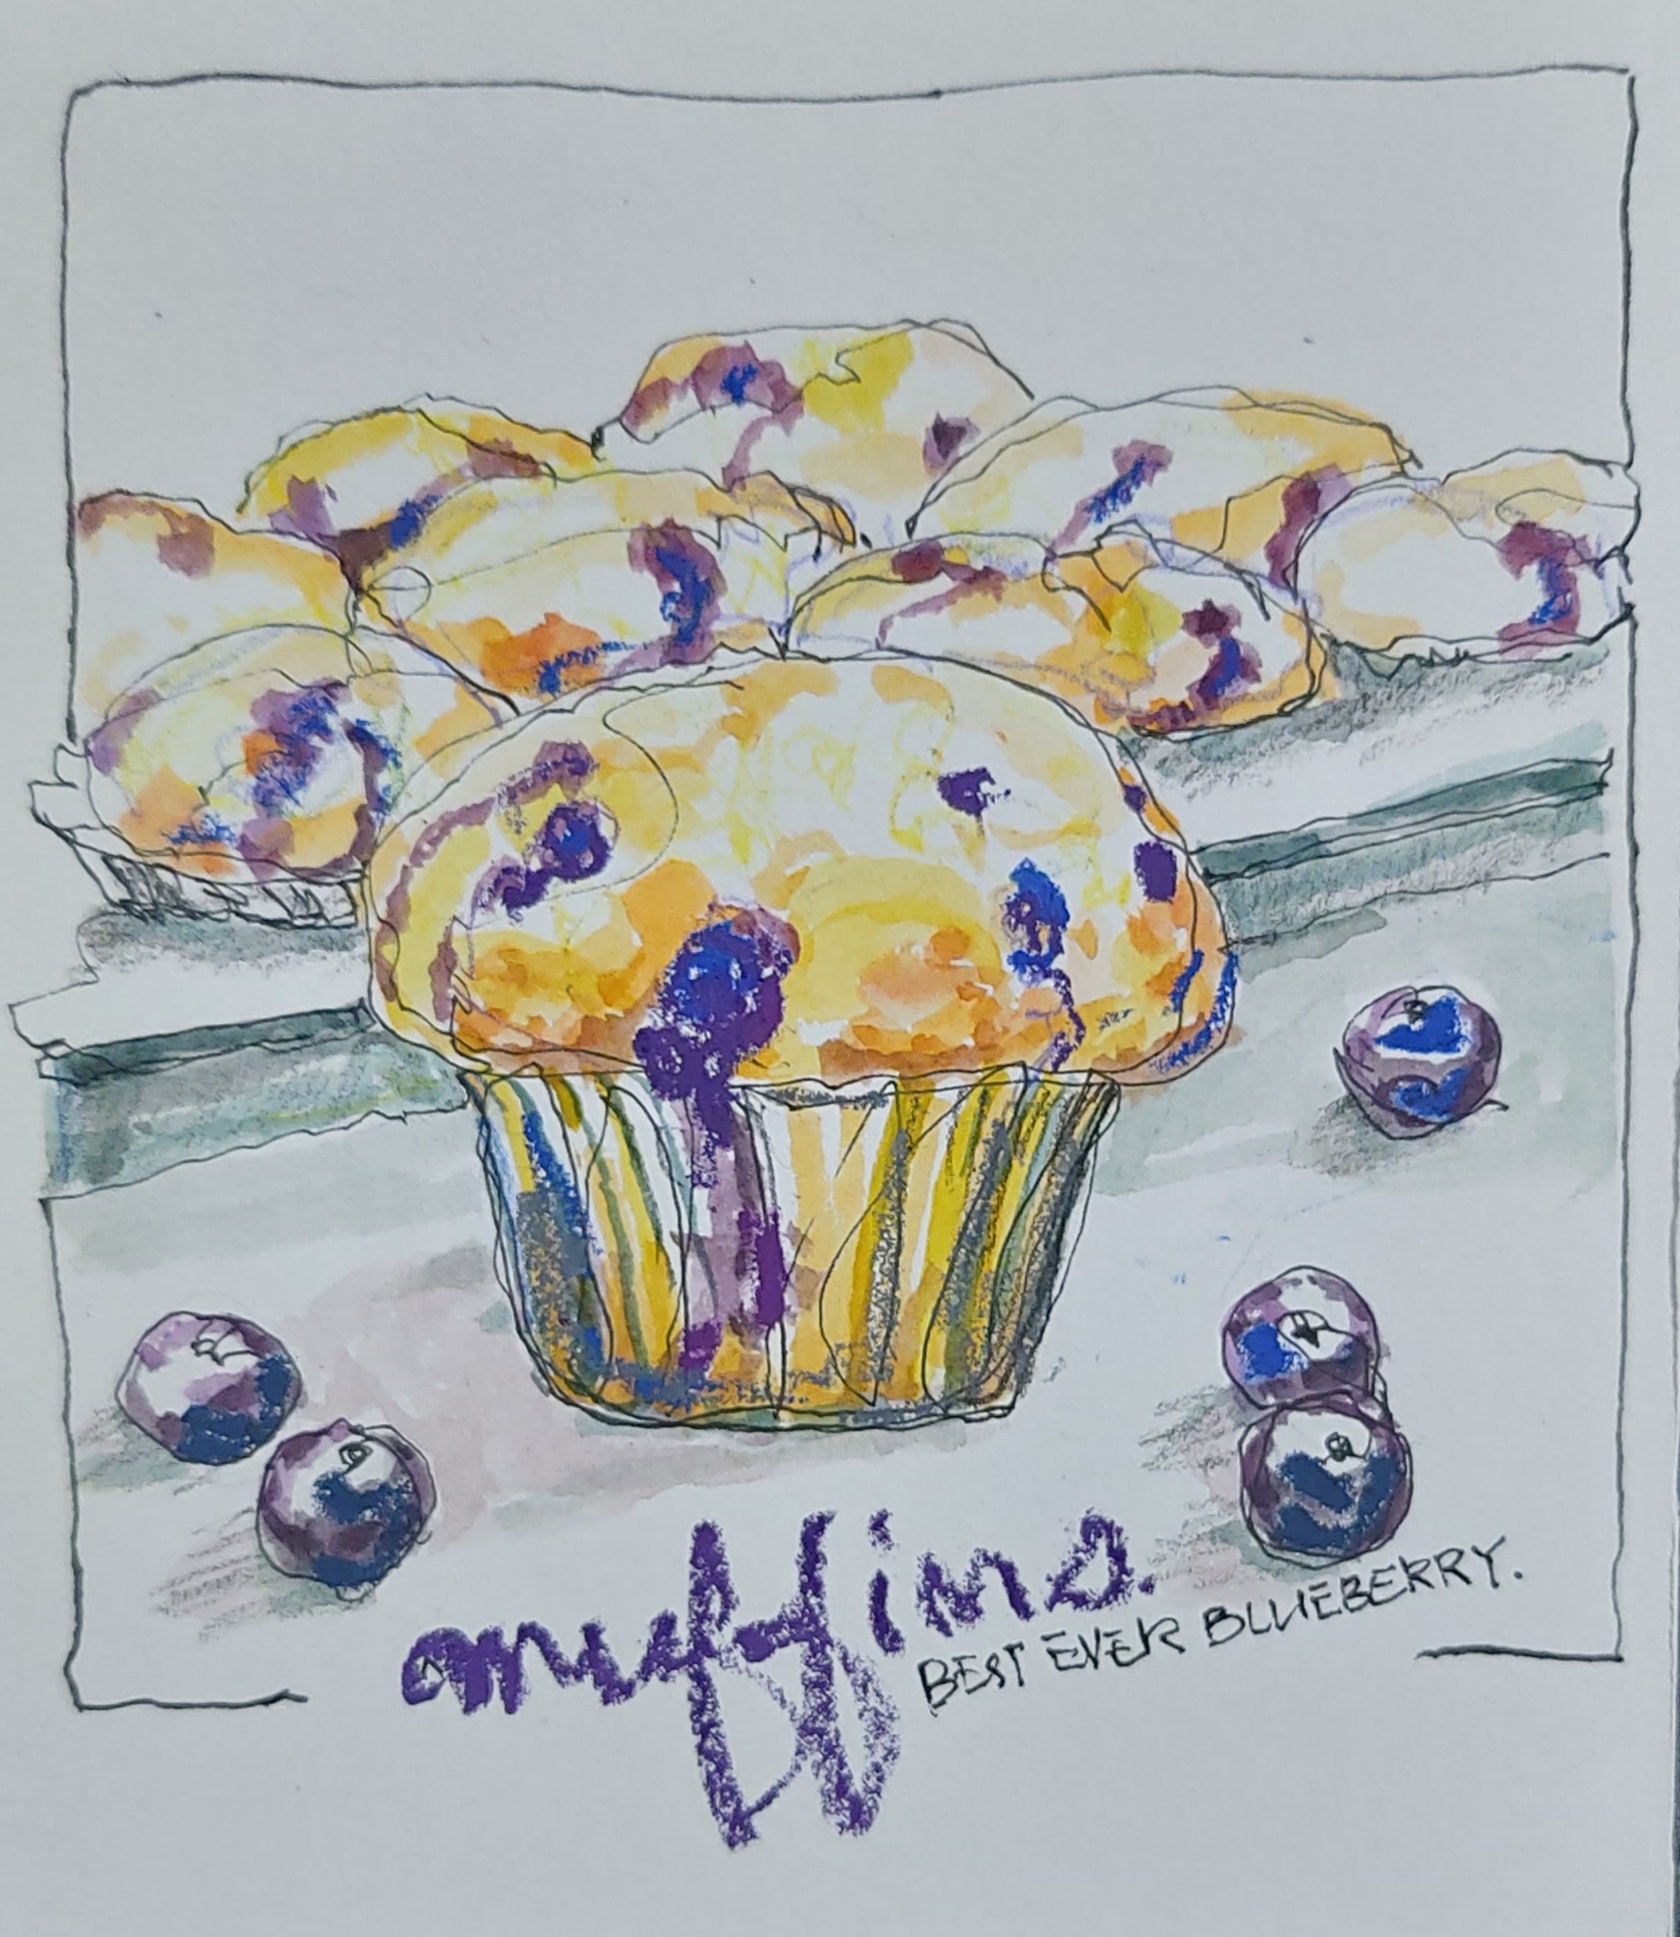 muffins.
BEST EVER BLUEBERRY.